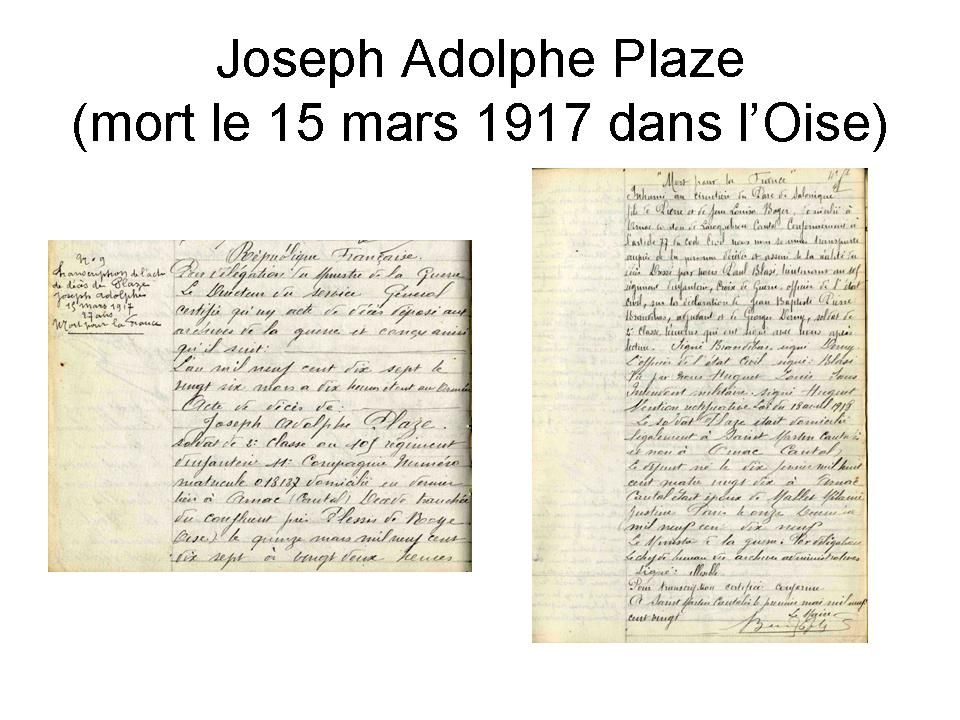 Joseph Adolphe Plaze
(mort le 15 mars 1917 dans l'Oise)
N° 9
transcription de l'acte
de décès de Plaze
Joseph Adolphe
15 mars 1917
27 ans
Mort pour la France
République Française.
Par délégation du Ministre de la Guerre
Le Directeur du Service Général
certifie qu'un acte de décès déposé aux
archives de la guerre est conçu ainsi
qu'il suit:
L'an mil neuf cent dix sept le
vingt six mars a dix heures étant au
Acte de décès de:
Joseph Adolphe Plaze.
soldat de 2e classe au 105 régiment
d'infanterie 11e Compagnie Numéro
matricule 013137 domicilié en dernier
lieu à Arnac (Cantal) Décédé tranchée
du confluent près Plessis de Roye
Oise) le quinze mars mil neuf cent
dix sept à vingt deux heures
"Mort pour la France"
Inhumé au cimetière du Parc de
fils de Pierre et de Louise domicilié à
Arnac Cantal Conformément à
l'article 77 du code Civil nous nous sommes transporté
auprès de la personne décédée et assuré de la réalité du
décès Dressé par nous Paul Blasi, lieutenant au 105
régiment d'infanterie, Croix de Guerre officier de l'état
civil, sur la déclaration de Jean Baptiste Pierre
adjudant et de Georges soldat de
2e Classe témoins qui ont signé avec nous après
lecture. Signé signé
L'officier de l'état civil signé: Blasi
Vu par nous Huguet Louis Sous
Intendant militaire signé Huguet
Mention rectificative Loi du 18 avril 1918
Le soldat Plaze était domicilié
légalement à Saint Martin Cantalès
et non à Arnac Cantal;
Le défunt né le dix mil huit
cent quatre vingt dix à Arnac
Cantal était époux de Mallet
Justine Paris le onze Décembre
mil neuf cent dix neuf
Le Ministre de la guerre Par délégation
Le chef du bureau des archives administratives
Signé: illisible
Pour transcription certifiée conforme
A Saint Martin Cantalès le premier mai mil neuf
cent vingt
Le Maire